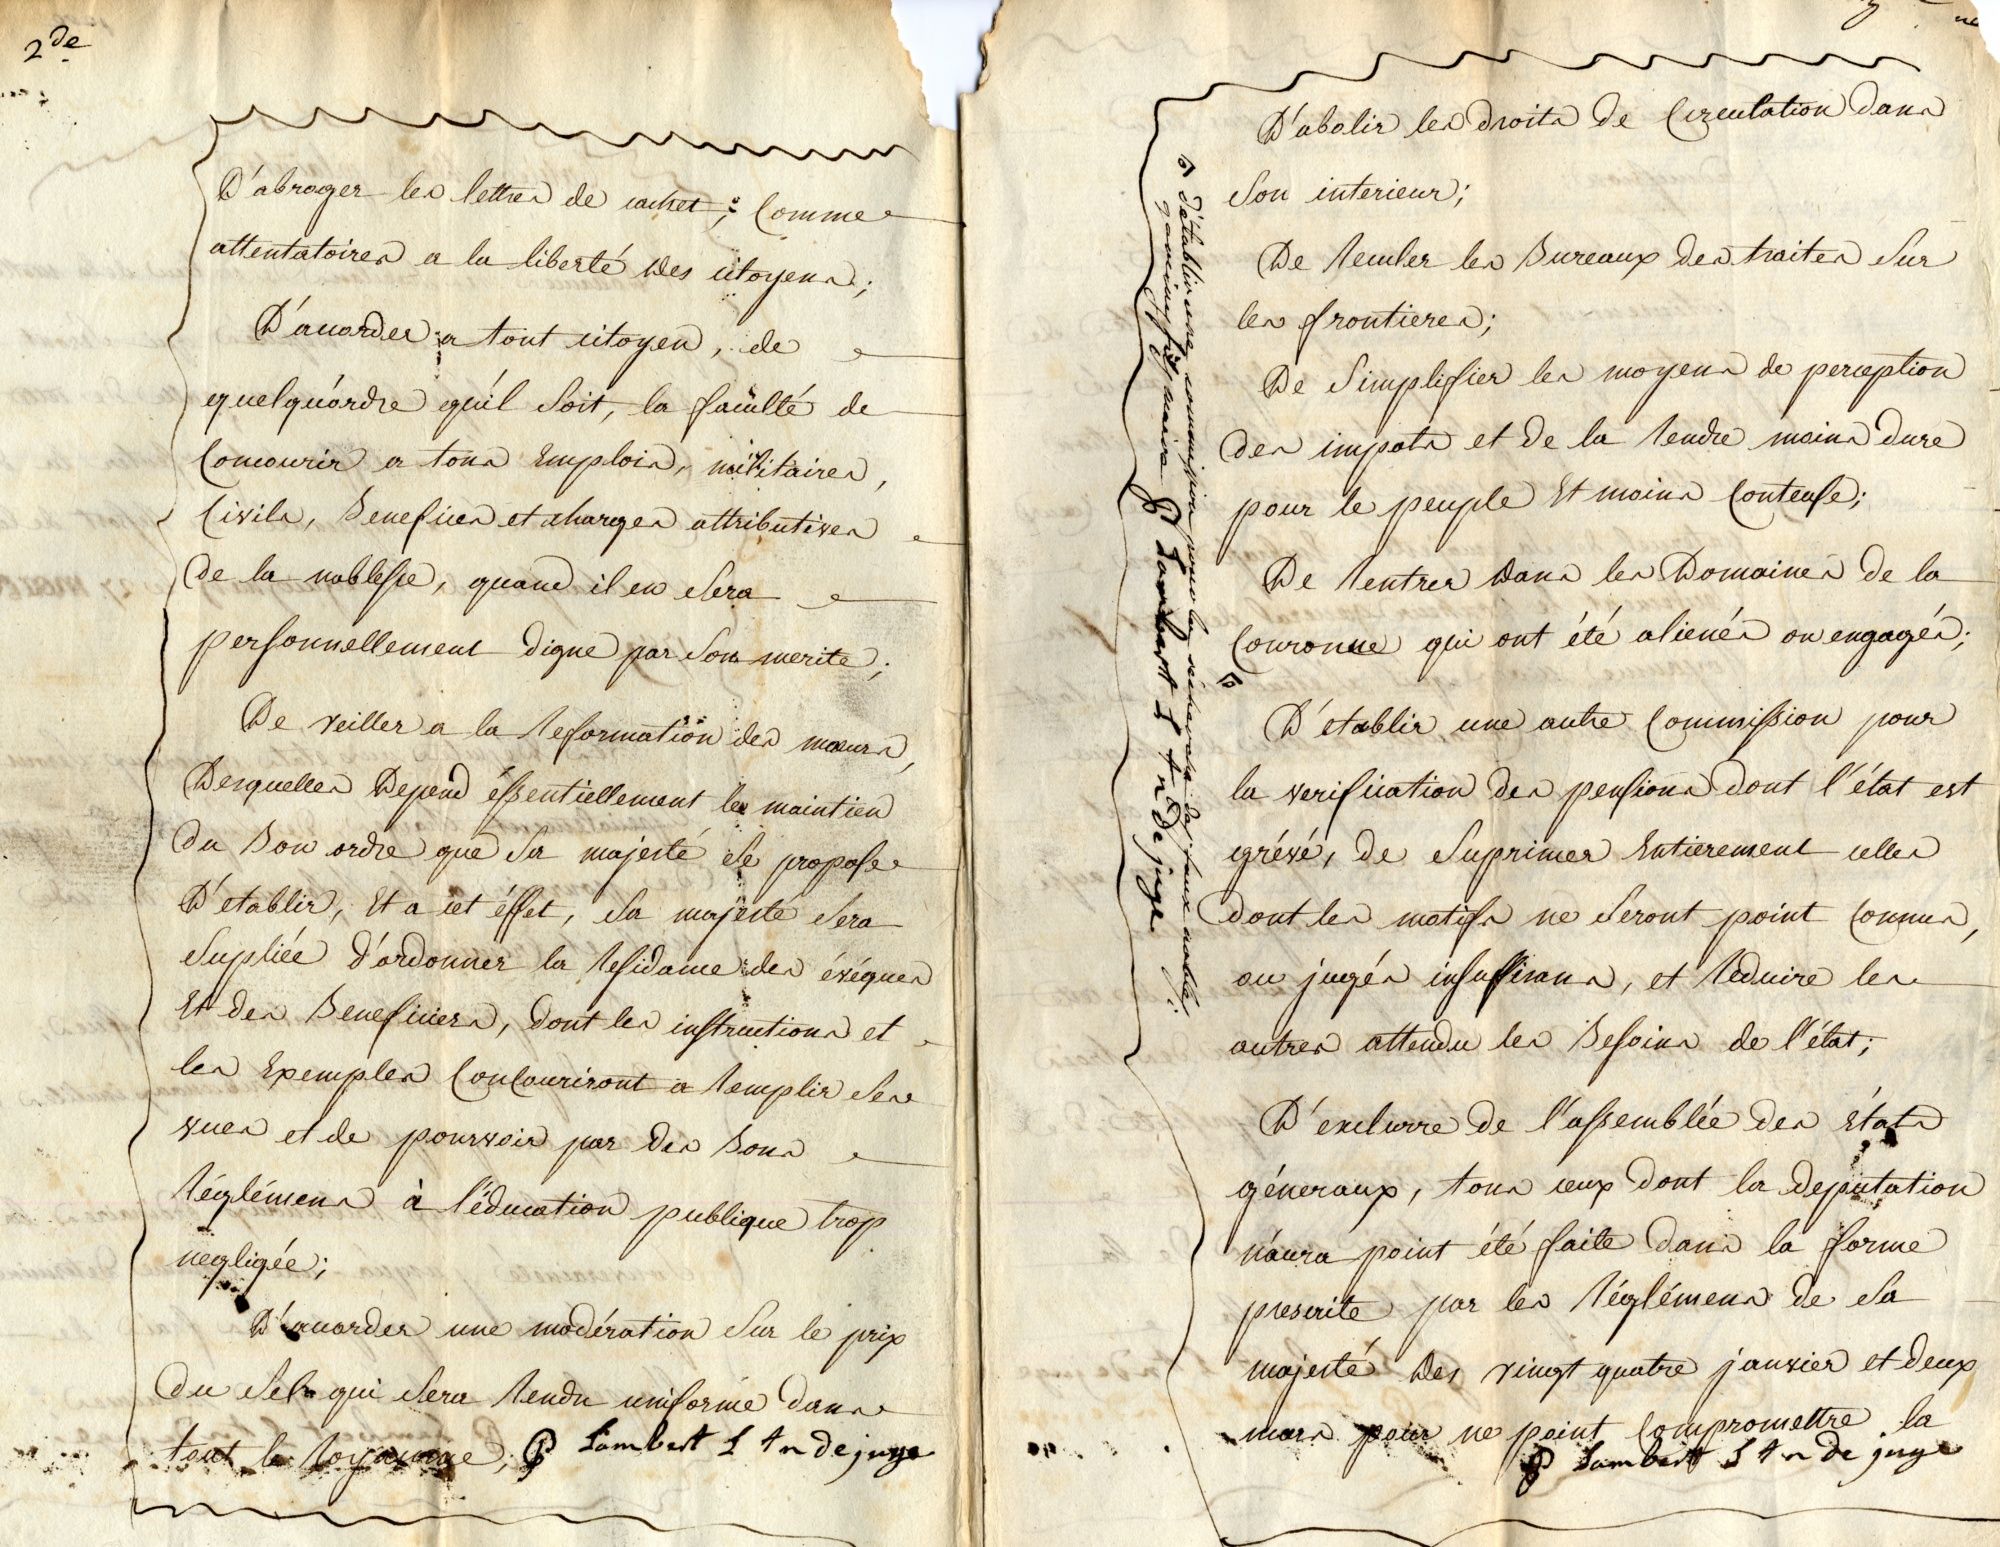 2de
D'abroger les lettres de cachet, comme
attentatoires a la liberté des citoyens;
D'acorder a tout citoyen, de
quelqu'ordre qu'il soit, la faculté de
concourir a tous emplois, militaires,
civils, Benefices et charges attributives
de la noblesse, quand il en sera
personnellement digne par son merite;
De veiller a la reformation des mœurs,
Desquelles Depend éssentiellement le maintien
du Bon ordre que sa majesté se propose
D'etablir, Et a cet éffet, sa majesté sera
supliée d'ordonner la residance des évéques
Et des Beneficiers, dont les instructions et
les Exemples concouriront a remplir ses
vues et de pourvoir par des Bons
réglémens à l'éducation publique trop
negligée;
D'acorder une modération sur le prix
du sel qui sera rendu uniforme dans
tout le royaume, Lambert Lt n de juge
D'abolir les droits de circulation dans
son interieur;
De reculer les Bureaux des traites sur
les frontieres;
De simplifier les moyens de perception
des impots et de la rendre moins dure
pour le peuple Et moins couteuse;
De rentrer dans les Domaines de la
couronne qui ont été alienés ou engagés;
D'etablir une autre commission pour
la verification des pensions dont l'état est
grévé, de suprimer Entierement celles
dont les motifs ne seront point connus,
ou jugés insuffisans, et reduire les
autres attendu les Besoins de l'état;
D'exclurre de l'assemblée des États
géneraux, tous ceux dont la deputation
n'aura point été faite dans la forme
prescrite par les réglémens de sa
majesté des vingt quatre janvier et deux
mars pour ne point compromettre la
Lambert Lt n de juge
d'établir une commission pour les recherches des faux nobles
Lambert Lt n de juge